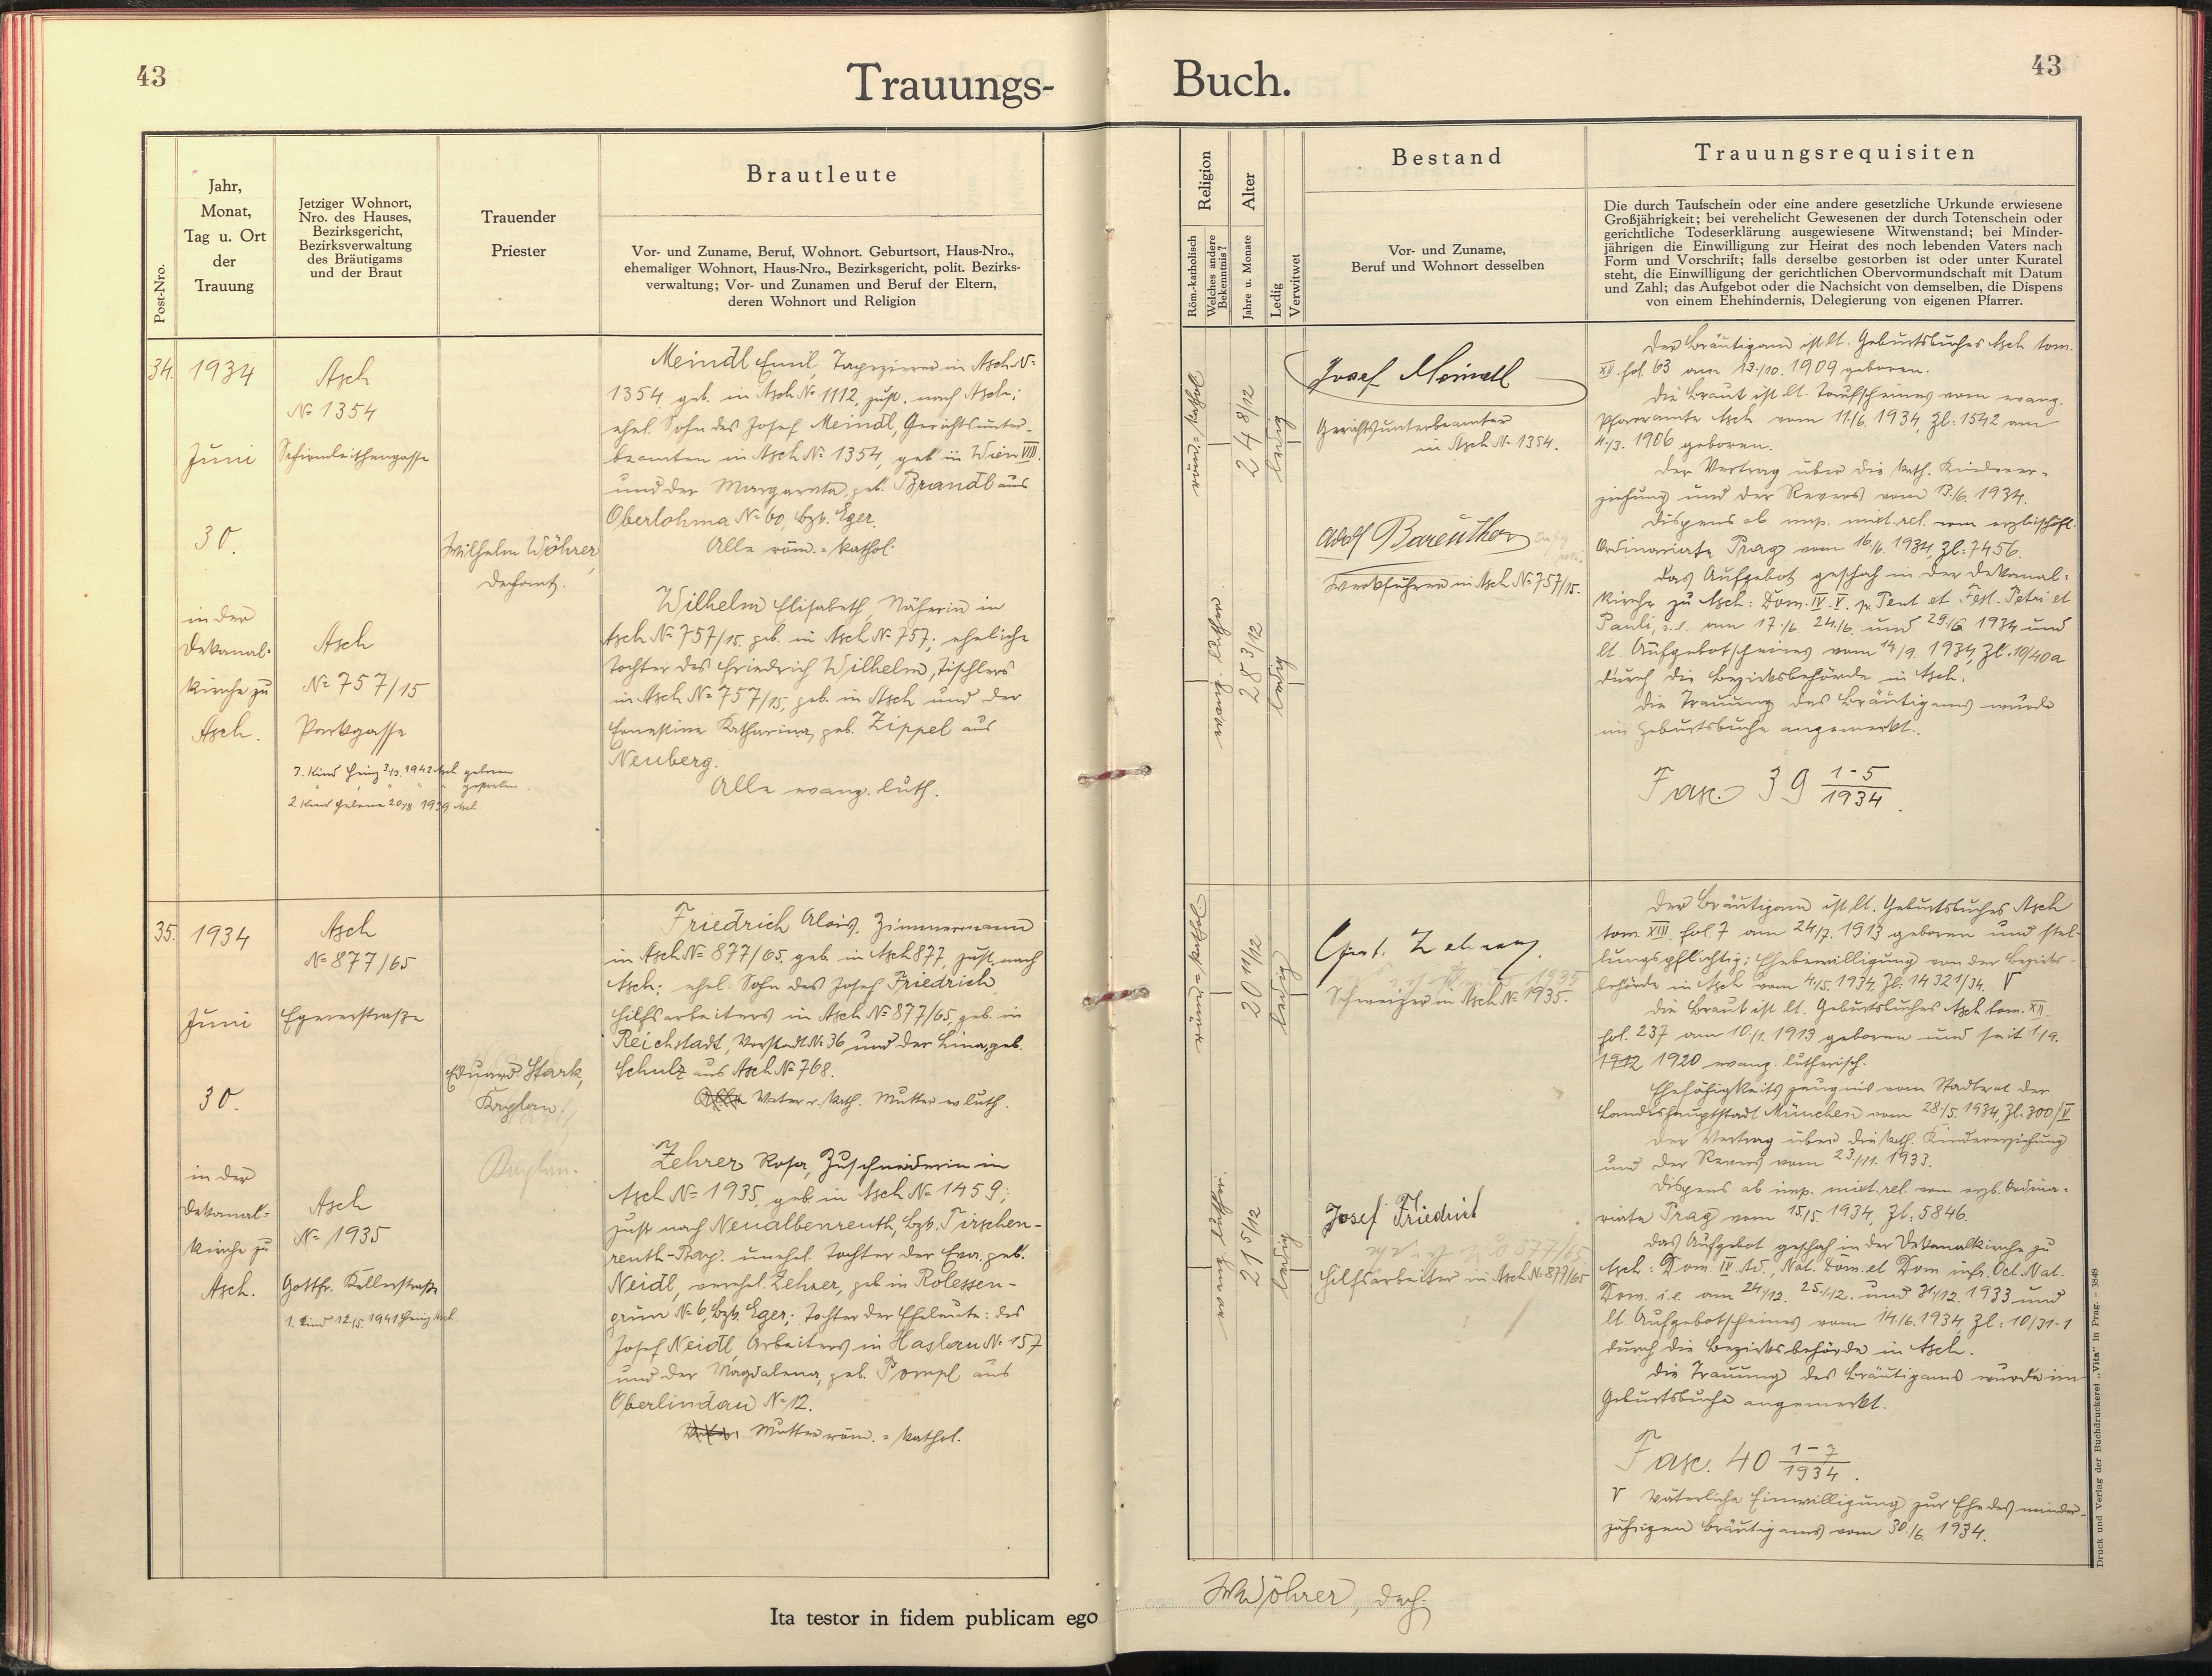 43
Trauungs-
Post-Nro.
Jahr,
Monat,
Tag u. Ort
der
Trauung
Jetziger Wohnort,
Nro. des Hauses,
Bezirksgericht,
Bezirksverwaltung
des Bräutigams
und der Braut
Trauender
Priester
Brautleute
Vor- und Zuname, Beruf, Wohnort. Geburtsort, Haus-Nro.,
ehemaliger Wohnort, Haus-Nro., Bezirksgericht, polit. Bezirks-
verwaltung; Vor- und Zunamen und Beruf der Eltern,
deren Wohnort und Religion
34.
1934
Juni
30.
in der
Dekanal-
kirche zu
Asch.
Asch
№ 1354
Selbmleithengasse
Asch
№ 757/15
Parkgasse
3. Kind Heinz 3/12. 1942 Asch geboren
gestorben
2. Kind Helene 20/8 1939 Asch
Wilhelm Wöhrer,
Dechant.
Meindl Emil, Tapezierer in Asch №
1354, geb. in Asch № 1112, zust. nach Asch;
ehel. Sohn des Josef Meindl, Gerichtsunter-
beamten in Asch № 1354, geb. in Wien VIII.
und der Margareta, geb. Brandl aus
Oberlohma № 60, Bzk. Eger.
Alle röm.-kathol.
Wilhelm Elisabeth, Näherin in
Asch № 757/15, geb. in Asch № 757; eheliche
Tochter des Friedrich Wilhelm, Tischlers
in Asch № 757/15, geb. in Asch und der
Ernestine Katharina, geb. Zippel aus
Neuberg.
Alle evang. luth.
35.
1934
Juni
30.
in der
Dekanal-
kirche zu
Asch.
Asch
№ 877/65
Egererstraße
Asch
№ 1935
Gottfr. Kellerstraße
1. Kind 12/5. 1941 Heinz Asch
Eduard Stark,
Kaplan.
Kaplan.
Friedrich Alois, Zimmermann
in Asch № 877/65, geb. in Asch 877, zust. nach
Asch; ehel. Sohn des Josef Friedrich,
Hilfsarbeiters in Asch № 877/65, geb. in
Reichstadt, Vorstadt № 36 und der Lina, geb.
Schulz aus Asch № 768.
Vater r. kath. Mutter ev luth.
Zehrer Rosa, Zuschneiderin in
Asch № 1935, geb. in Asch № 1459;
zust nach Neualbenreuth, Bzk. Tirschen-
reuth-Bay. unehel. Tochter der Eva, geb.
Neidl, verehel. Zehrer, geb in Rolessen-
grün № 6, Bzk. Eger; Tochter der Eheleute: des
Josef Neidl, Arbeiters in Haslau № 157
und der Magdalena, geb. Pompl aus
Oberlindau № 12.
Mutter röm.-kathol.
Ita testor in fidem publicam ego
Buch.
43
Religion
Röm.-katholisch
Welches andere
Bekenntnis?
Alter
Jahre u. Monate
Ledig
Verwitwet
Bestand
Vor- und Zuname,
Beruf und Wohnort desselben
Trauungsrequisiten
Die durch Taufschein oder eine andere gesetzliche Urkunde erwiesene
Großjährigkeit; bei verehelicht Gewesenen der durch Totenschein oder
gerichtliche Todeserklärung ausgewiesene Witwenstand; bei Minder-
jährigen die Einwilligung zur Heirat des noch lebenden Vaters nach
Form und Vorschrift; falls derselbe gestorben ist oder unter Kuratel
steht, die Einwilligung der gerichtlichen Obervormundschaft mit Datum
und Zahl; das Aufgebot oder die Nachsicht von demselben, die Dispens
von einem Ehehindernis, Delegierung von eigenen Pfarrer.
röm.-kathol.
24 8/12
ledig
evang. luther.
28 3/12
ledig
Josef Meindl
Gerichtsunterbeamter
in Asch № 1354.
Adolf Bareuther
Werkführer in Asch № 757/15.
Der Bräutigam ist lt. Geburtsbuches Asch tom.
XII. fol. 63 am 13./10. 1909 geboren.
Die Braut ist lt. Taufscheines vom evang.
Pfarramte Asch vom 11/6. 1934, Zl: 1542 am
4./3. 1906 geboren.
Der Vertrag über die kath. Kinderer-
ziehung und der Revers vom 13./6. 1934.
Dispens ab imp. mixt. rel. vom erzbischöfl.
Ordinariate Prag vom 16/6. 1934, Zl: 7456.
Das Aufgebot geschah in der Dekanal-
kirche zu Asch: Dom. IV. V. p. Pent et Fest. Petri et
Pauli, i. e. am 17./6. 24./6. und 29./6 1934 und
lt. Aufgebotscheines vom 14/9. 1934, Zl. 10/40a
durch die Bezirksbehörde in Asch.
Die Trauung des Bräutigams wurde
im Geburtsbuche angemerkt.
Fasc. 39 1-5/1934.
röm.-kathol.
20 11/12
ledig
evang. luther.
21 5/12
ledig
Schweizer in Asch № 1935.
Josef Friedrich
Hilfsarbeiter in Asch № 877/65
Der Bräutigam ist lt. Geburtsbuches Asch
tom. XIII. fol. 7 am 24/7. 1913 geboren und stel-
lungspflichtig; Ehebewilligung von der Bezirks-
behörde in Asch vom 4./5. 1934, Zl. 14321/34. V
Die Braut ist lt. Geburtsbuches Asch tom. XII.
fol. 237 am 10/1. 1913 geboren und seit 1/9.
1912 1920 evang. lutherisch.
Ehefähigkeitszeugnis vom Stadtrat der
Landeshauptstadt München vom 28./5. 1934, Zl. 300/V
Der Vertrag über die kath. Kindererziehung
und der Revers vom 23./11. 1933.
Dispens ab imp. mixt. rel. vom erzb. Ordina-
riate Prag vom 15/5. 1934, Zl: 5846.
Das Aufgebot geschah in der Dekanalkirche zu
Asch: Dom. IV. Ad., Nat. Dom. et Dom infr. Oct. Nat.
Dom. i. e. am 24./12. 25./12. und 31./12. 1933 und
lt. Aufgebotscheines vom 14./6. 1934, Zl: 10/31-1
durch die Bezirksbehörde in Asch.
Die Trauung des Bräutigams wurde im
Geburtsbuche angemerkt.
Fasc. 40 1-7/1934.
V Väterliche Einwilligung zur Ehe des minder-
jährigen Bräutigams vom 30./6. 1934.
WWöhrer, Dech.
Druck und Verlag der Buchdruckerei „Vita" in Prag. – 3848